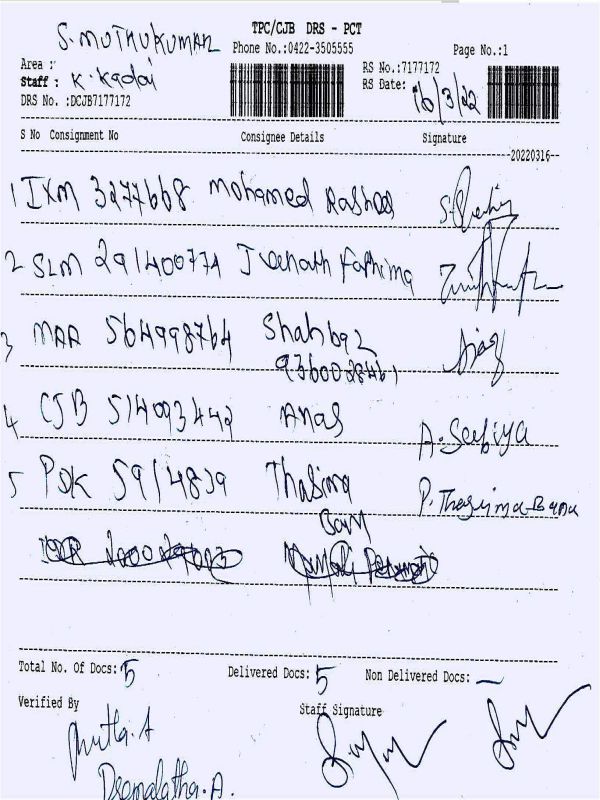 TPC/CJB DRS - PCT
S. MUTHUKUMAR
Phone No.:0422-3505555 Page No.:1
Area :
Staff : K. Kadai
RS No.:7177172
RS Date: 16/3/22
DRS No. :DCJB7177172
S No Consignment No Consignee Details Signature
20220316
1 IXM 3277668 Mohamed
2 SLM 291400774 Fathima
3 MAA 564998764 Shahbaz
4 CJB 514093442 Anas A. Sabiya
5 PDK 5914839 Thasima P. Thasima Banu
Banu
Total No. Of Docs: 5 Delivered Docs: 5 Non Delivered Docs: —
Verified By Staff Signature